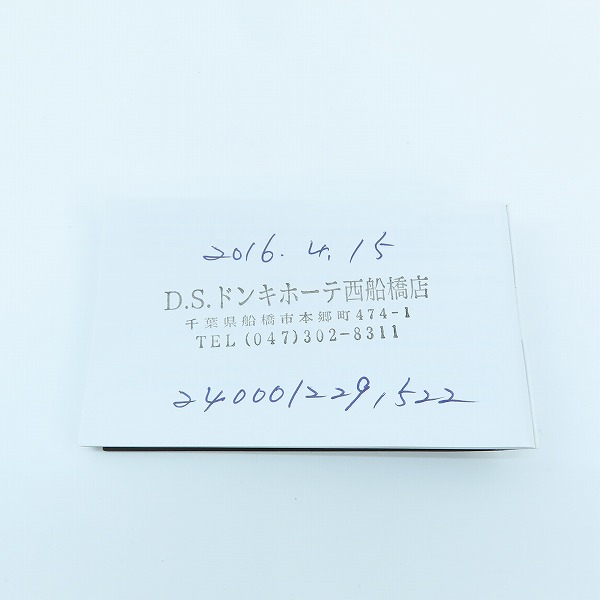 2016. 4. 15
D.S.ドンキホーテ西船橋店
千葉県船橋市本郷町474-1
TEL (047)302-8311
240001229,522